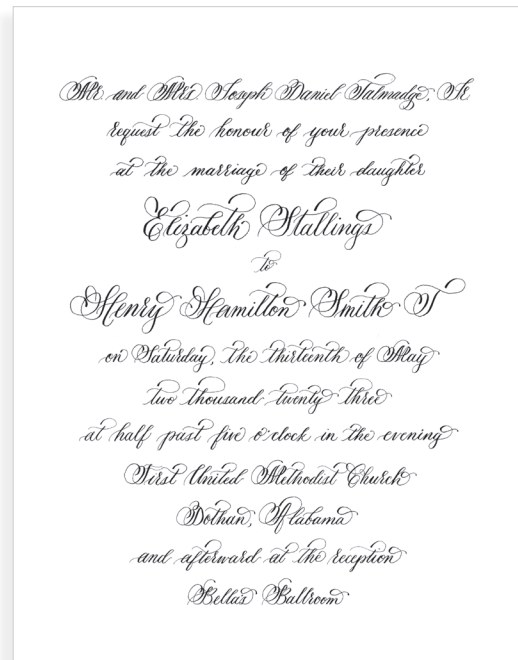 Mr. and Mrs. Joseph Daniel Talmadge, Sr
request the honour of your presence
at the marriage of their daughter
Elizabeth Stallings
to
Henry Hamilton Smith
on Saturday, the thirteenth of May
two thousand twenty three
at half past five o'clock in the evening
First United Methodist Church
Dothan, Alabama
and afterward at the reception
Bella's Ballroom